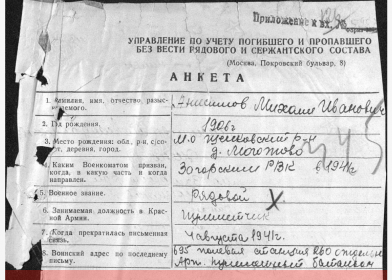 Приложение к вх. №
УПРАВЛЕНИЕ ПО УЧЕТУ ПОГИБШЕГО И ПРОПАВШЕГО
БЕЗ ВЕСТИ РЯДОВОГО И СЕРЖАНТСКОГО СОСТАВА
(Москва, Покровский бульвар, 8)
АНКЕТА
1. Фамилия, имя, отчество разыс-
киваемого.
Анисимов Михаил Иванович
2. Год рождения.
1906 г
3. Место рождения: обл., р-н, с/со-
вет, деревня, город.
М.о р-н
д. Могожово
4. Каким Военкоматом призван,
когда, в какую часть и когда
направлен.
Загорским РВК в 1941 г.
5. Военное звание.
Рядовой
6. Занимаемая должность в Крас-
ной Армии.
7. Когда прекратилась письменная
связь.
августа 1941 г.
8. Воинский адрес по последнему
письму.
695 полевая станция отдельн
Арт. пулеметный батальон